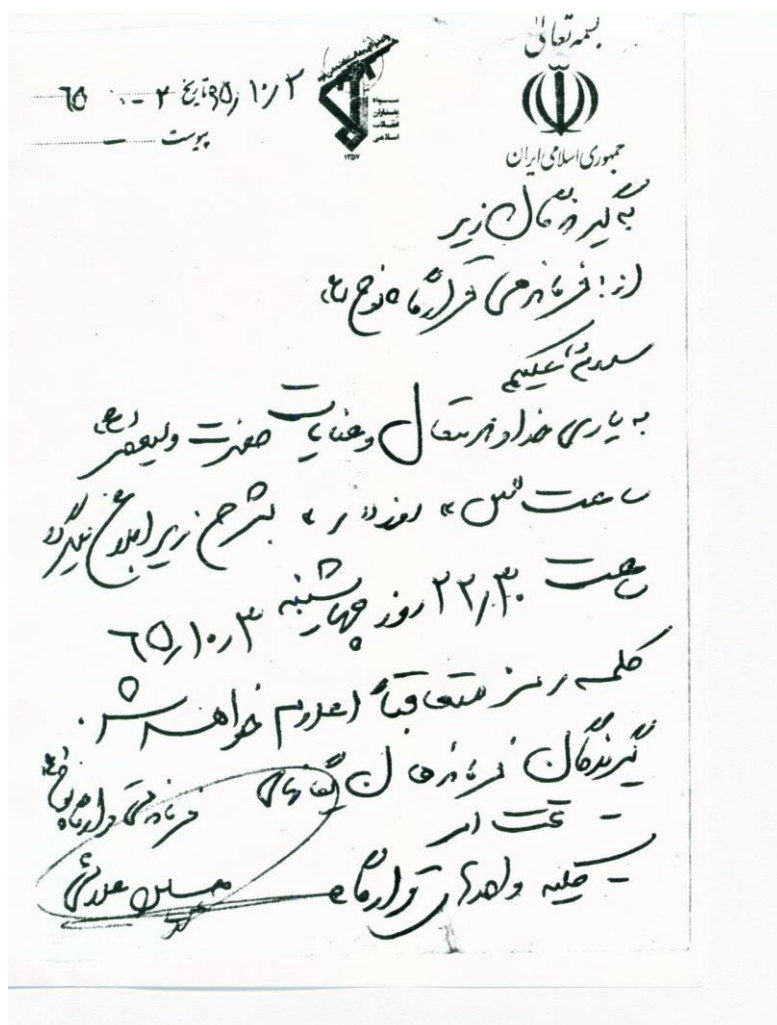 بسمه تعالی
جمهوری اسلامی ایران
سپاه پاسداران انقلاب اسلامی
۱۳۵۷
۶۵/۱۰/۲
تاریخ ۲ - ۱۰ - ۶۵
پیوست
به گیرندگان زیر
از: فرماندهی قرارگاه نوح (ع)
سلام علیکم
به یاری خداوند متعال و عنایات حضرت ولیعصر (عج)
ساعت "س" روز "ر" بشرح زیر ابلاغ میگردد
ساعت ۲۲/۳۰ روز چهارشنبه ۶۵/۱۰/۳
کلمه رمز متعاقباً اعلام خواهد شد.
گیرندگان فرماندهان یگانهای
- تحت امر
- کلیه واحدهای قرارگاه
فرماندهی قرارگاه نوح (ع)
حسین علائی